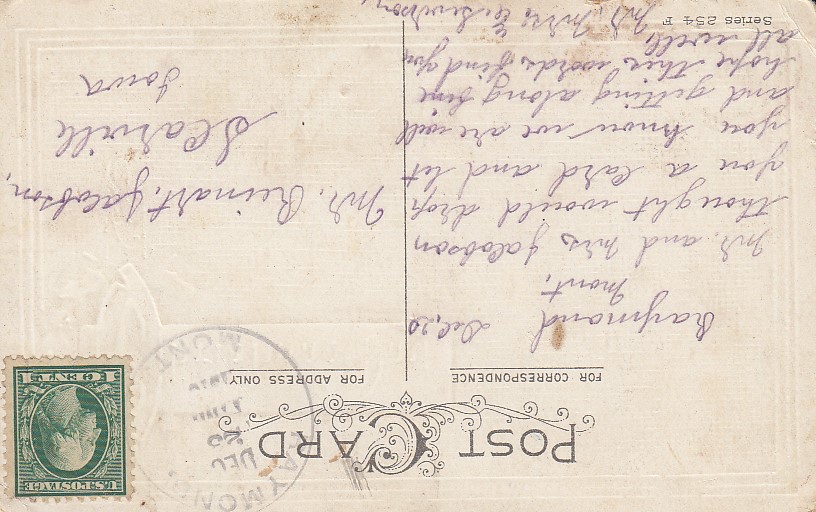 POST CARD
FOR CORRESPONDENCE
FOR ADDRESS ONLY
Raymond Dec, 20
Mont,
Mr. and Mrs Jacobson
thought would drop
you a card and let
you know we are well
and getting along fine
hope this words find you
all well,
Mr. Mrs.
Mr. Reinart, Jacobson,
Scarville
Iowa
RAYMOND
MONT.
DEC
20
U.S. POSTAGE
1 CENT 1
Series 254 F